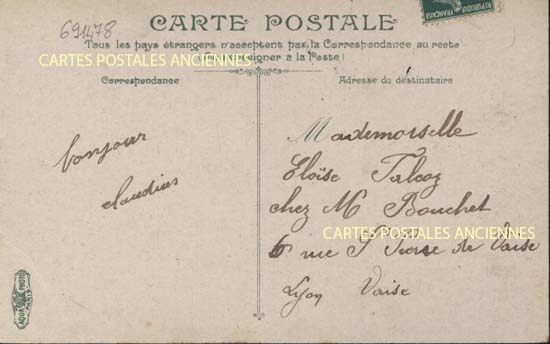 691478
CARTE POSTALE
Tous les pays étrangers n'acceptent pas la Correspondance au recto
(Se renseigner à la Poste)
CARTES POSTALES ANCIENNES
Correspondance
Adresse du destinataire
bonjour
claudius
Mademoiselle
Eloïse Falcoz
chez M Bouchet
6 rue St Pierre de Vaise
CARTES POSTALES ANCIENNES
Lyon Vaise
AQUA PHOTO
PARIS